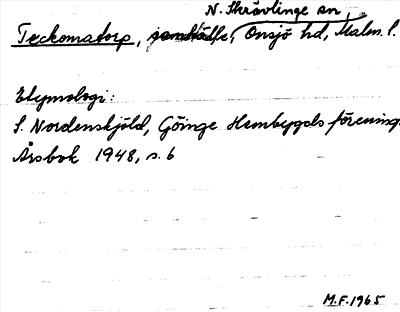 N. Skrävlinge sn,
Teckomatorp, samhälle, Onsjö hd, Malm. l.
Etymologi:
S. Nordenskjöld, Göinge Hembygds förening.
Årsbok 1948, s. 6
M.F. 1965